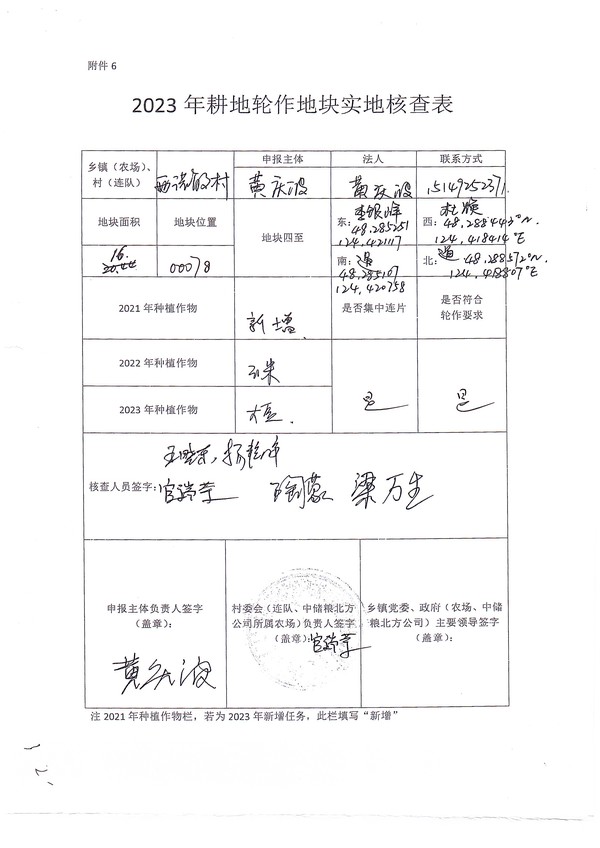 附件 6
2023 年耕地轮作地块实地核查表
乡镇（农场）、
村（连队）
申报主体
法人
联系方式
黄庆波
黄庆波
15149252371
地块面积
地块位置
地块四至
东：李银峰
48.285251
124.42117
西：杜
48.288443°N.
124.418414°E
16.
20.44
00078
南：道
48.285107
124.420758
北：道 48.288572°N.
124.418807°E
2021 年种植作物
新增
是否集中连片
是否符合
轮作要求
2022 年种植作物
玉米
2023 年种植作物
大豆.
是
是
核查人员签字：
梁万生
申报主体负责人签字
（盖章）：
黄庆波
村委会（连队、中储粮北方
公司所属农场）负责人签字
（盖章）：
乡镇党委、政府（农场、中储
粮北方公司）主要领导签字
（盖章）：
注 2021 年种植作物栏，若为 2023 年新增任务，此栏填写“新增”